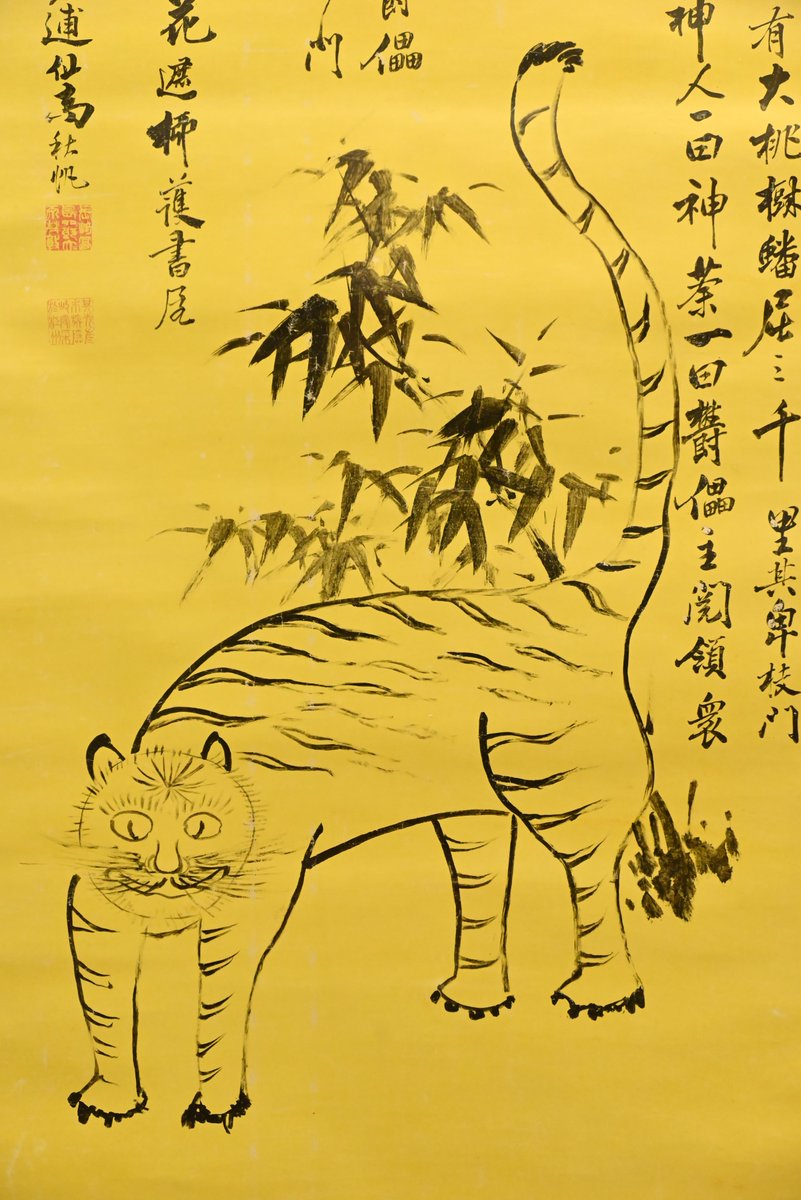 有大桃樹蟠屈三千里其卑枝門
神人一曰神荼一曰鬱儡主閱領衆
儡
門
花遮柳護書屋
逋仙高秋帆